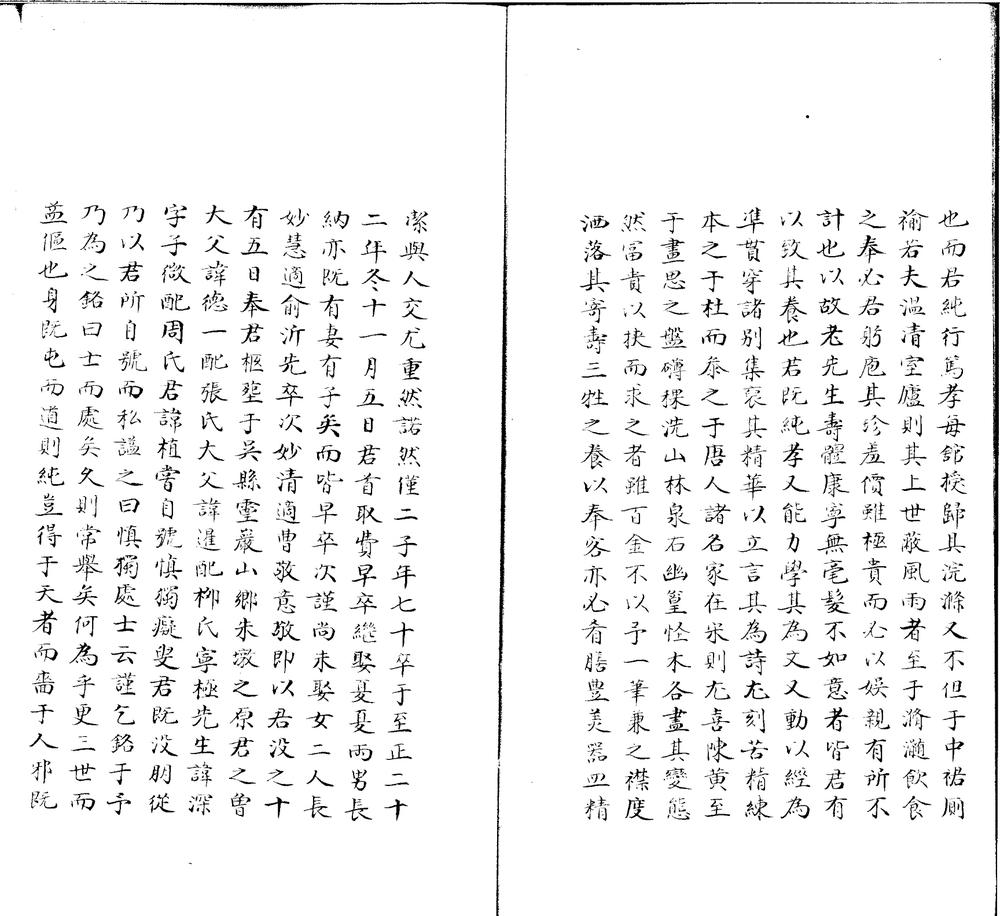 也而君純行篤孝每舘授歸其浣滌又不但于中裙厠
褕若夫温清室廬則其上世蔽風雨者至于滫瀡飲食
之奉必君躬庖其珍羞價雖極貴而必以娱親有所不
計也以故老先生壽軆康寧無毫髮不如意者皆君有
以致其養也君既純孝又能力學其為文又動以經為
凖貫穿諸别集裒其精華以立言其為詩尤刻苦精練
本之于杜而叅之于唐人諸名家在宋則尤喜陳黄至
于畫思之盤礴祼洗山林泉石幽篁怪木各盡其變態
然冨貴以挾而求之者雖百金不以予一筆兼之襟度
洒落其寄壽三牲之養以奉客亦必肴膳豐美器皿精
潔與人交尤重然諾然僅二子年七十卒于至正二十
二年冬十一月五日君首取費早卒繼娶夏夏兩男長
納亦既有妻有子矣而皆早卒次謹尚未娶女二人長
妙慧適俞沂先卒次妙清適曹敬意敬即以君没之十
有五日奉君柩塟于吴縣靈巖山鄉朱墩之原君之曽
大父諱德一配張氏大父諱暹配栁氏寧極先生諱深
字子微配周氏君諱植嘗自號慎獨癡叟君既没朋從
乃以君所自號而私謚之曰慎獨處士云謹乞銘于予
乃為之銘曰士而處矣久則常舉矣何為乎更三世而
益傴也身既屯而道則純豈得于天者而嗇于人邪既